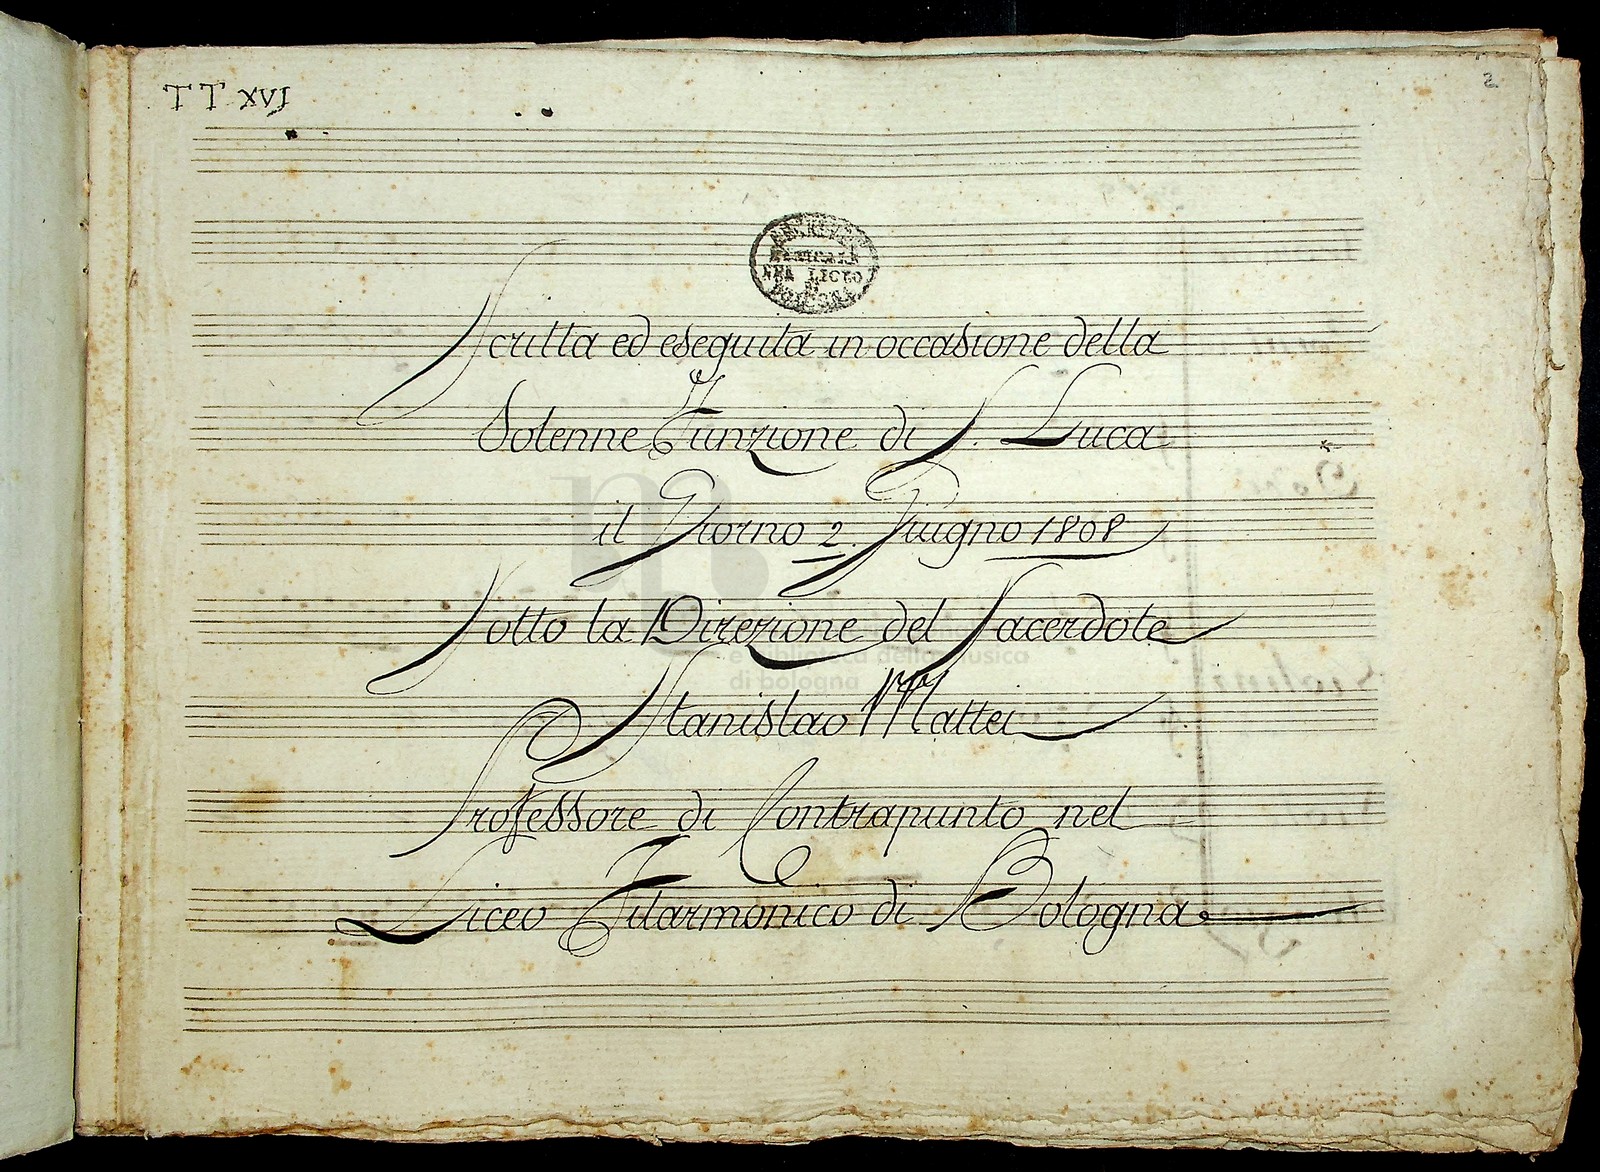 TT. XVI
2
BIBLIOTECA
MUSICALE
NEL LICEO
DI
BOLOGNA
Scritta ed eseguita in occasione della
Solenne Funzione di S. Luca
il Giorno 2. Giugno 1808
Sotto la Direzione del Sacerdote
Stanislao Mattei
Professore di Contrapunto nel
Liceo Filarmonico di Bologna
e biblioteca della musica
di bologna